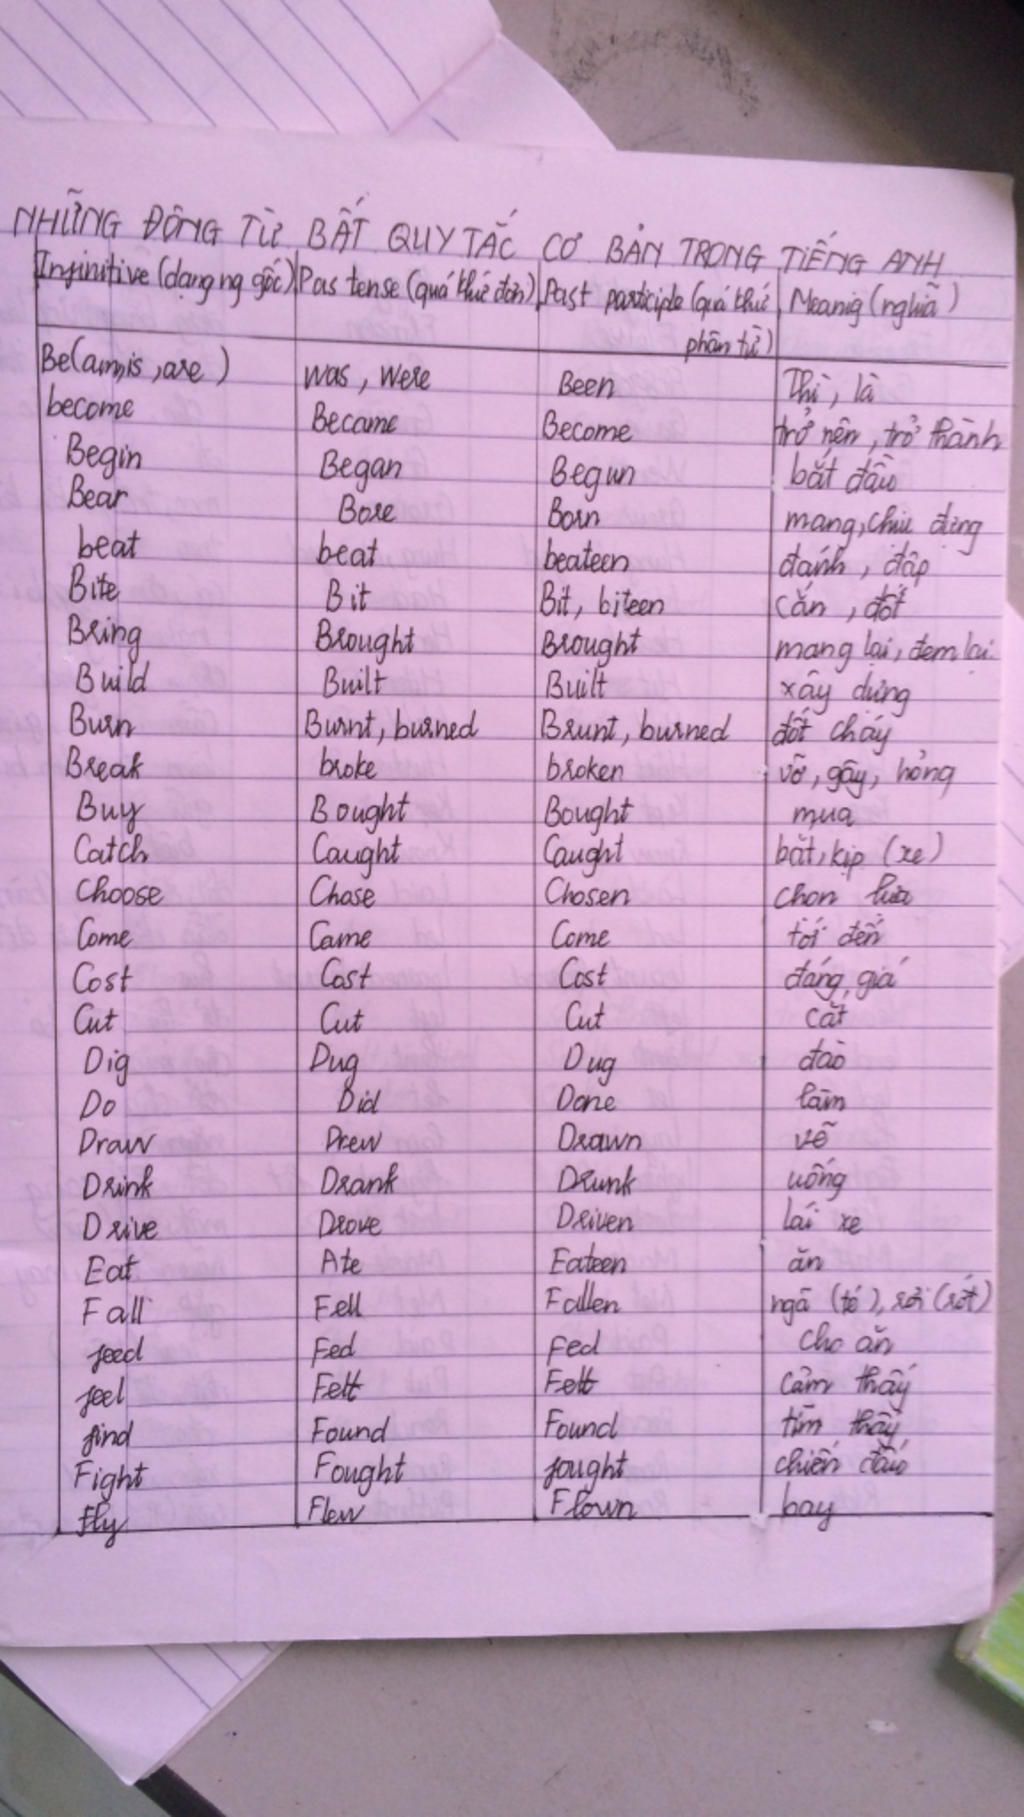 NHỮNG ĐỘNG TỪ BẤT QUY TẮC CƠ BẢN TRONG TIẾNG ANH
Infinitive (dạng ng gốc) Pas tense (quá khứ đơn) Past participle (quá khứ phân từ) Meanig (nghiã)
Be(am,is ,are ) was, were Been Thì, là
become Became Become trở nên, trở thành
Begin Began Begun bắt đầu
Bear Bore Born mang, chiu đưng
beat beat beateen đánh, đâp
Bite Bit Bit, biteen cắn, đốt
Bring Brought Brought mang lại, đem lại
Build Built Built xây dưng
Burn Burnt, burned Brunt, burned đốt cháy
Break broke broken vỡ, gãy, hỏng
Buy Bought Bought mua
Catch Caught Caught bắt, kip (xe)
Choose Chose Chosen chon lưa
Come Came Come tới đến
Cost Cost Cost đáng, giá
Cut Cut Cut cắt
Dig Dug Dug đào
Do Did Done làm
Draw Drew Drawn vẽ
Drink Drank Drunk uống
Drive Drove Driven lái xe
Eat Ate Eateen ăn
Fall Fell Fallen ngã (té), rơi (rớt)
feed Fed Fed cho ăn
feel Felt Felt cảm thấy
find Found Found tìm thấy
Fight Fought fought chiến đấu
Fly Flew Flown bay